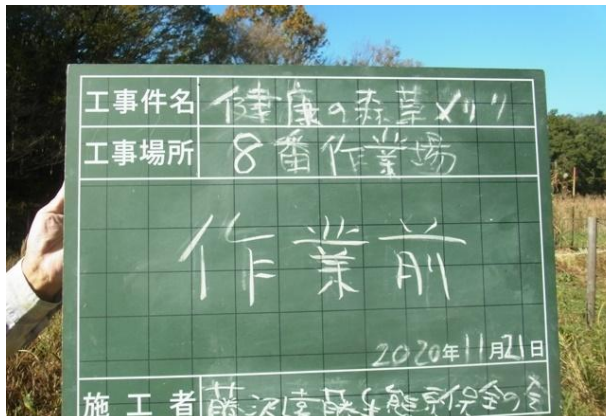 工事件名 健康の森草メリリ
工事場所 8番作業場
作業前
2020年11月21日
施工者 藤沢遠藤生態系保全の会